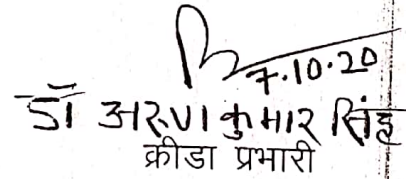 7.10.20
डॉ अरुण कुमार सिंह
क्रीडा प्रभारी